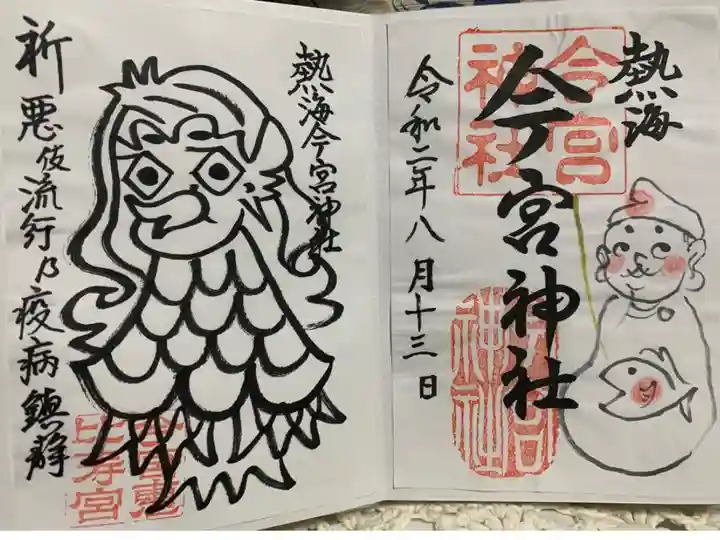 熱海
今宮神社
令和二年八月十三日
今宮
神社
熱海今宮神社
祈
悪伎流行乃疫病鎮静